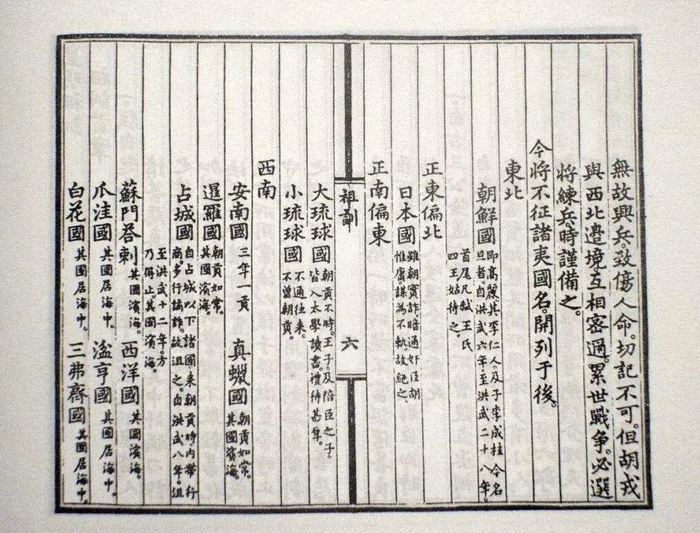 無故興兵。致傷人命。切記不可。但胡戎
與西北邊境互相密邇。累世戰爭。必選
將練兵。時謹備之。
今將不征諸夷國名。開列于後。
東北
朝鮮國 即高麗。其李仁人。及子李成桂今名
旦者。自洪武六年。至洪武二十八年。
首尾凡弑王氏
四王。姑待之。
正東偏北
日本國 雖朝實詐。暗通奸臣胡
惟庸。謀為不軌。故絕之。
正南偏東
祖訓
六
大琉球國 朝貢不時。王子。及陪臣之子。
皆入太學讀書。禮待甚厚。
小琉球國 不通往來。
不曾朝貢。
西南
安南國 三年一貢 真蠟國 朝貢如常。
其國濱海。
暹羅國 朝貢如常。
其國濱海。
占城國 自占城以下諸國。來朝貢時。內帶行
商。多行譎詐。故沮之。自洪武八年。沮
至洪武十二年。方
乃得止。其國濱海。
蘇門荅剌 其國濱海。 西洋國 其國濱海。
爪洼國 其國居海中。 湓亨國 其國居海中。
白花國 其國居海中。 三弗齊國 其國居海中。